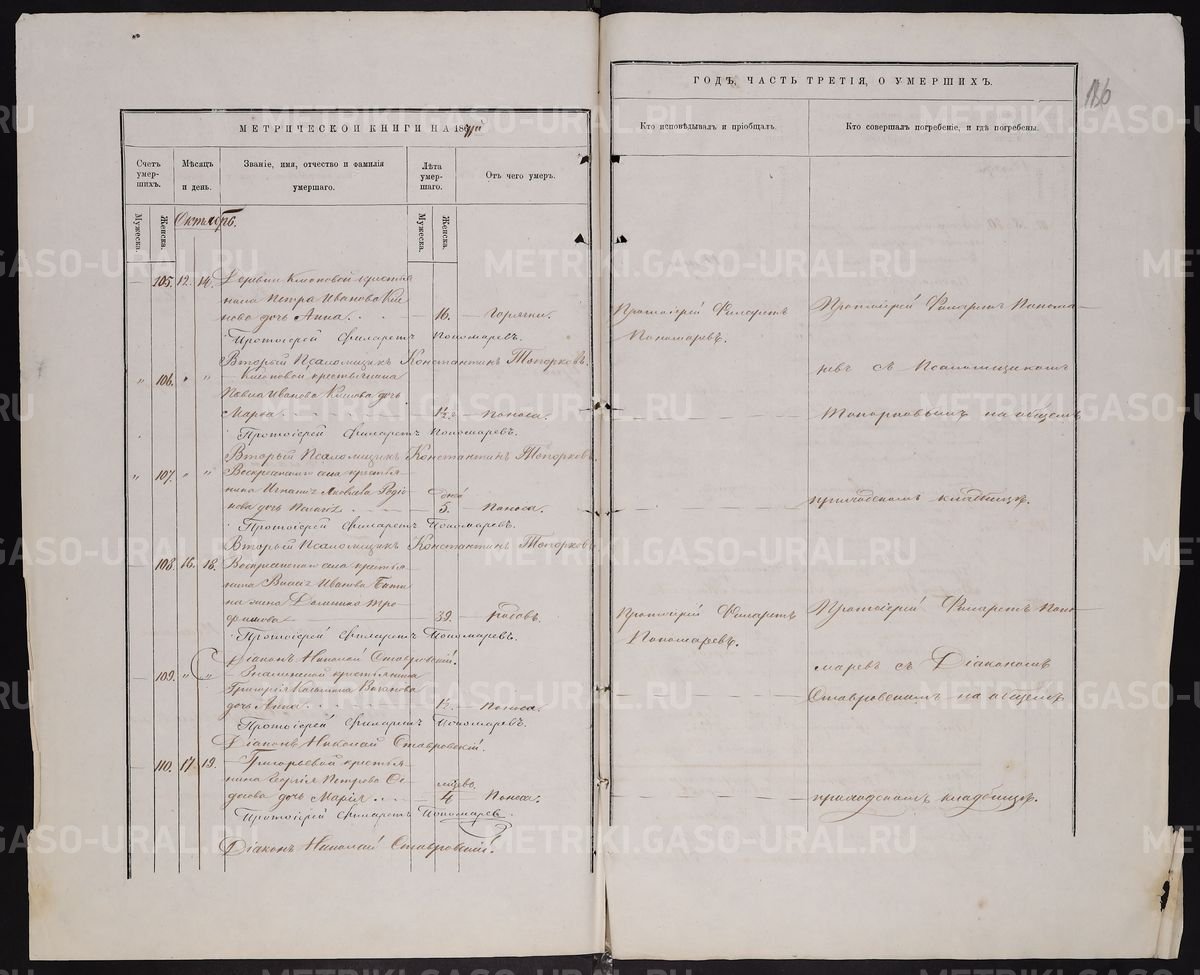 МЕТРИЧЕСКОЙ КНИГИ НА 18
Счетъ умер-шихъ.
Мѣсяцъ и день.
Званіе, имя, отчество и фамилія умершаго.
Лѣта умер-шаго.
Отъ чего умеръ.
Мужеска.
Женска.
Мужеска.
Женска.
Октябрь.
105. 12. 14. Деревни Клюповой крестья
нина Петра Иванова
дочь Анна. 16. Горячки.
Протоіерей Филаретъ Пономаревъ.
Вторый Псаломщикъ Константинъ Топорковъ.
" 106. " " крестьянина
Павла Иванова дочь
Марѳа 1½ Поноса.
Протоіерей Филаретъ Пономаревъ.
Вторый Псаломщикъ Константинъ Топорковъ.
" 107. " " Воскресенскаго села крестья
нина Игнатія Яковлева Родіо
нова дочь дней 5. Поноса.
Протоіерей Филаретъ Пономаревъ.
Вторый Псаломщикъ Константинъ Топорковъ.
108. 16. 18. Воскресенскаго села крестья
нина Иванова
жена Домника Тро
фимова 39. Родовъ.
Протоіерей Филаретъ Пономаревъ.
Діаконъ Николай Ставровскій.
109. " " крестьянина
Григорія Козьмина Ваганова
дочь Анна Поноса.
Протоіерей Филаретъ Пономаревъ.
Діаконъ Николай Ставровскій.
110. 17. 19. Григорьевой крестья
нина Георгія Петрова Ѳе
досова дочь Марія мѣсяцо. 4 Поноса.
Протоіерей Филаретъ Пономаревъ.
Діаконъ Николай Ставровскій.
ГОДЪ, ЧАСТЬ ТРЕТІЯ, О УМЕРШИХЪ.
186
Кто исповѣдывалъ и пріобщалъ.
Кто совершалъ погребеніе, и гдѣ погребены.
Протоіерей Филаретъ
Пономаревъ.
Протоіерей Филаретъ Понома
ревъ съ Псаломщикомъ
Топорковымъ на общемъ
приходскомъ кладбищѣ.
Протоіерей Филаретъ
Пономаревъ.
Протоіерей Филаретъ Поно
маревъ съ Діакономъ
Ставровскимъ на общемъ
приходскомъ кладбищѣ.
METRIKI.GASO-URAL.RU